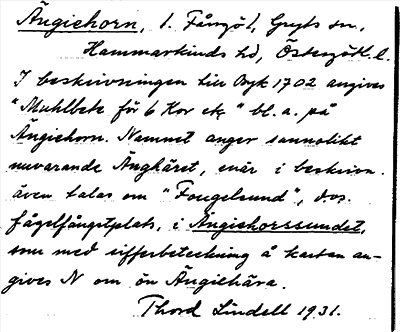 Ängiehorn, l. Fångö l, Gryts sn,
Hammarkinds hd, Östergötl. l.
I beskrivningen till Bryk 1702 angives
"Muhlbete för 6 Kor etc" bl. a. på
Ängiehorn. Namnet anger sannolikt
nuvarande Ängkäret, enär i beskrivn.
även talas om "Fougelsund", dvs.
fågelfångstplats, i Ängiehorssundet,
som med sifferbeteckning å kartan an-
gives N om ön Ängiehära.
Thord Lindell 1931.